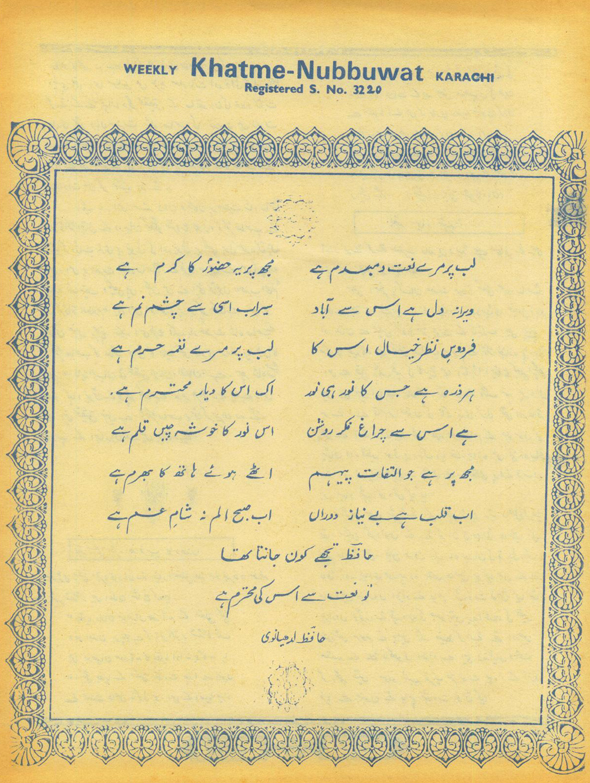 WEEKLY Khatme-Nubbuwat KARACHI
Registered S. No. 3220
لب پر مرے نعت دمبدم ہے مجھ پر یہ حضورؐ کا کرم ہے
ویرانہ دل ہے اس سے آباد سیراب اسی سے چشم نم ہے
فردوسِ نظر خیال اس کا لب پر مرے نغمہ حرم ہے
ہر ذرہ ہے جس کا نور ہی نور اک اس کا دیار محترم ہے۔
ہے اس سے چراغ فکر روشن اس نور کا خوشہ چیں قلم ہے
مجھ پر ہے جو التفات پیہم اٹھے ہوئے ہاتھ کا بھرم ہے
اب قلب ہے بے نیاز دوراں اب صبح الم نہ شامِ غم ہے
حافظؔ تجھے کون جانتا تھا
تو نعت سے اس کی محترم ہے
حافظؔ لدھیانوی